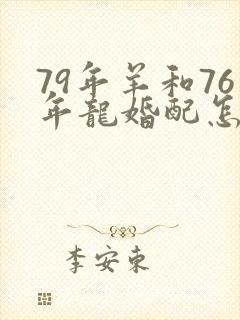 79年羊和76
年龍婚配怎
李安東